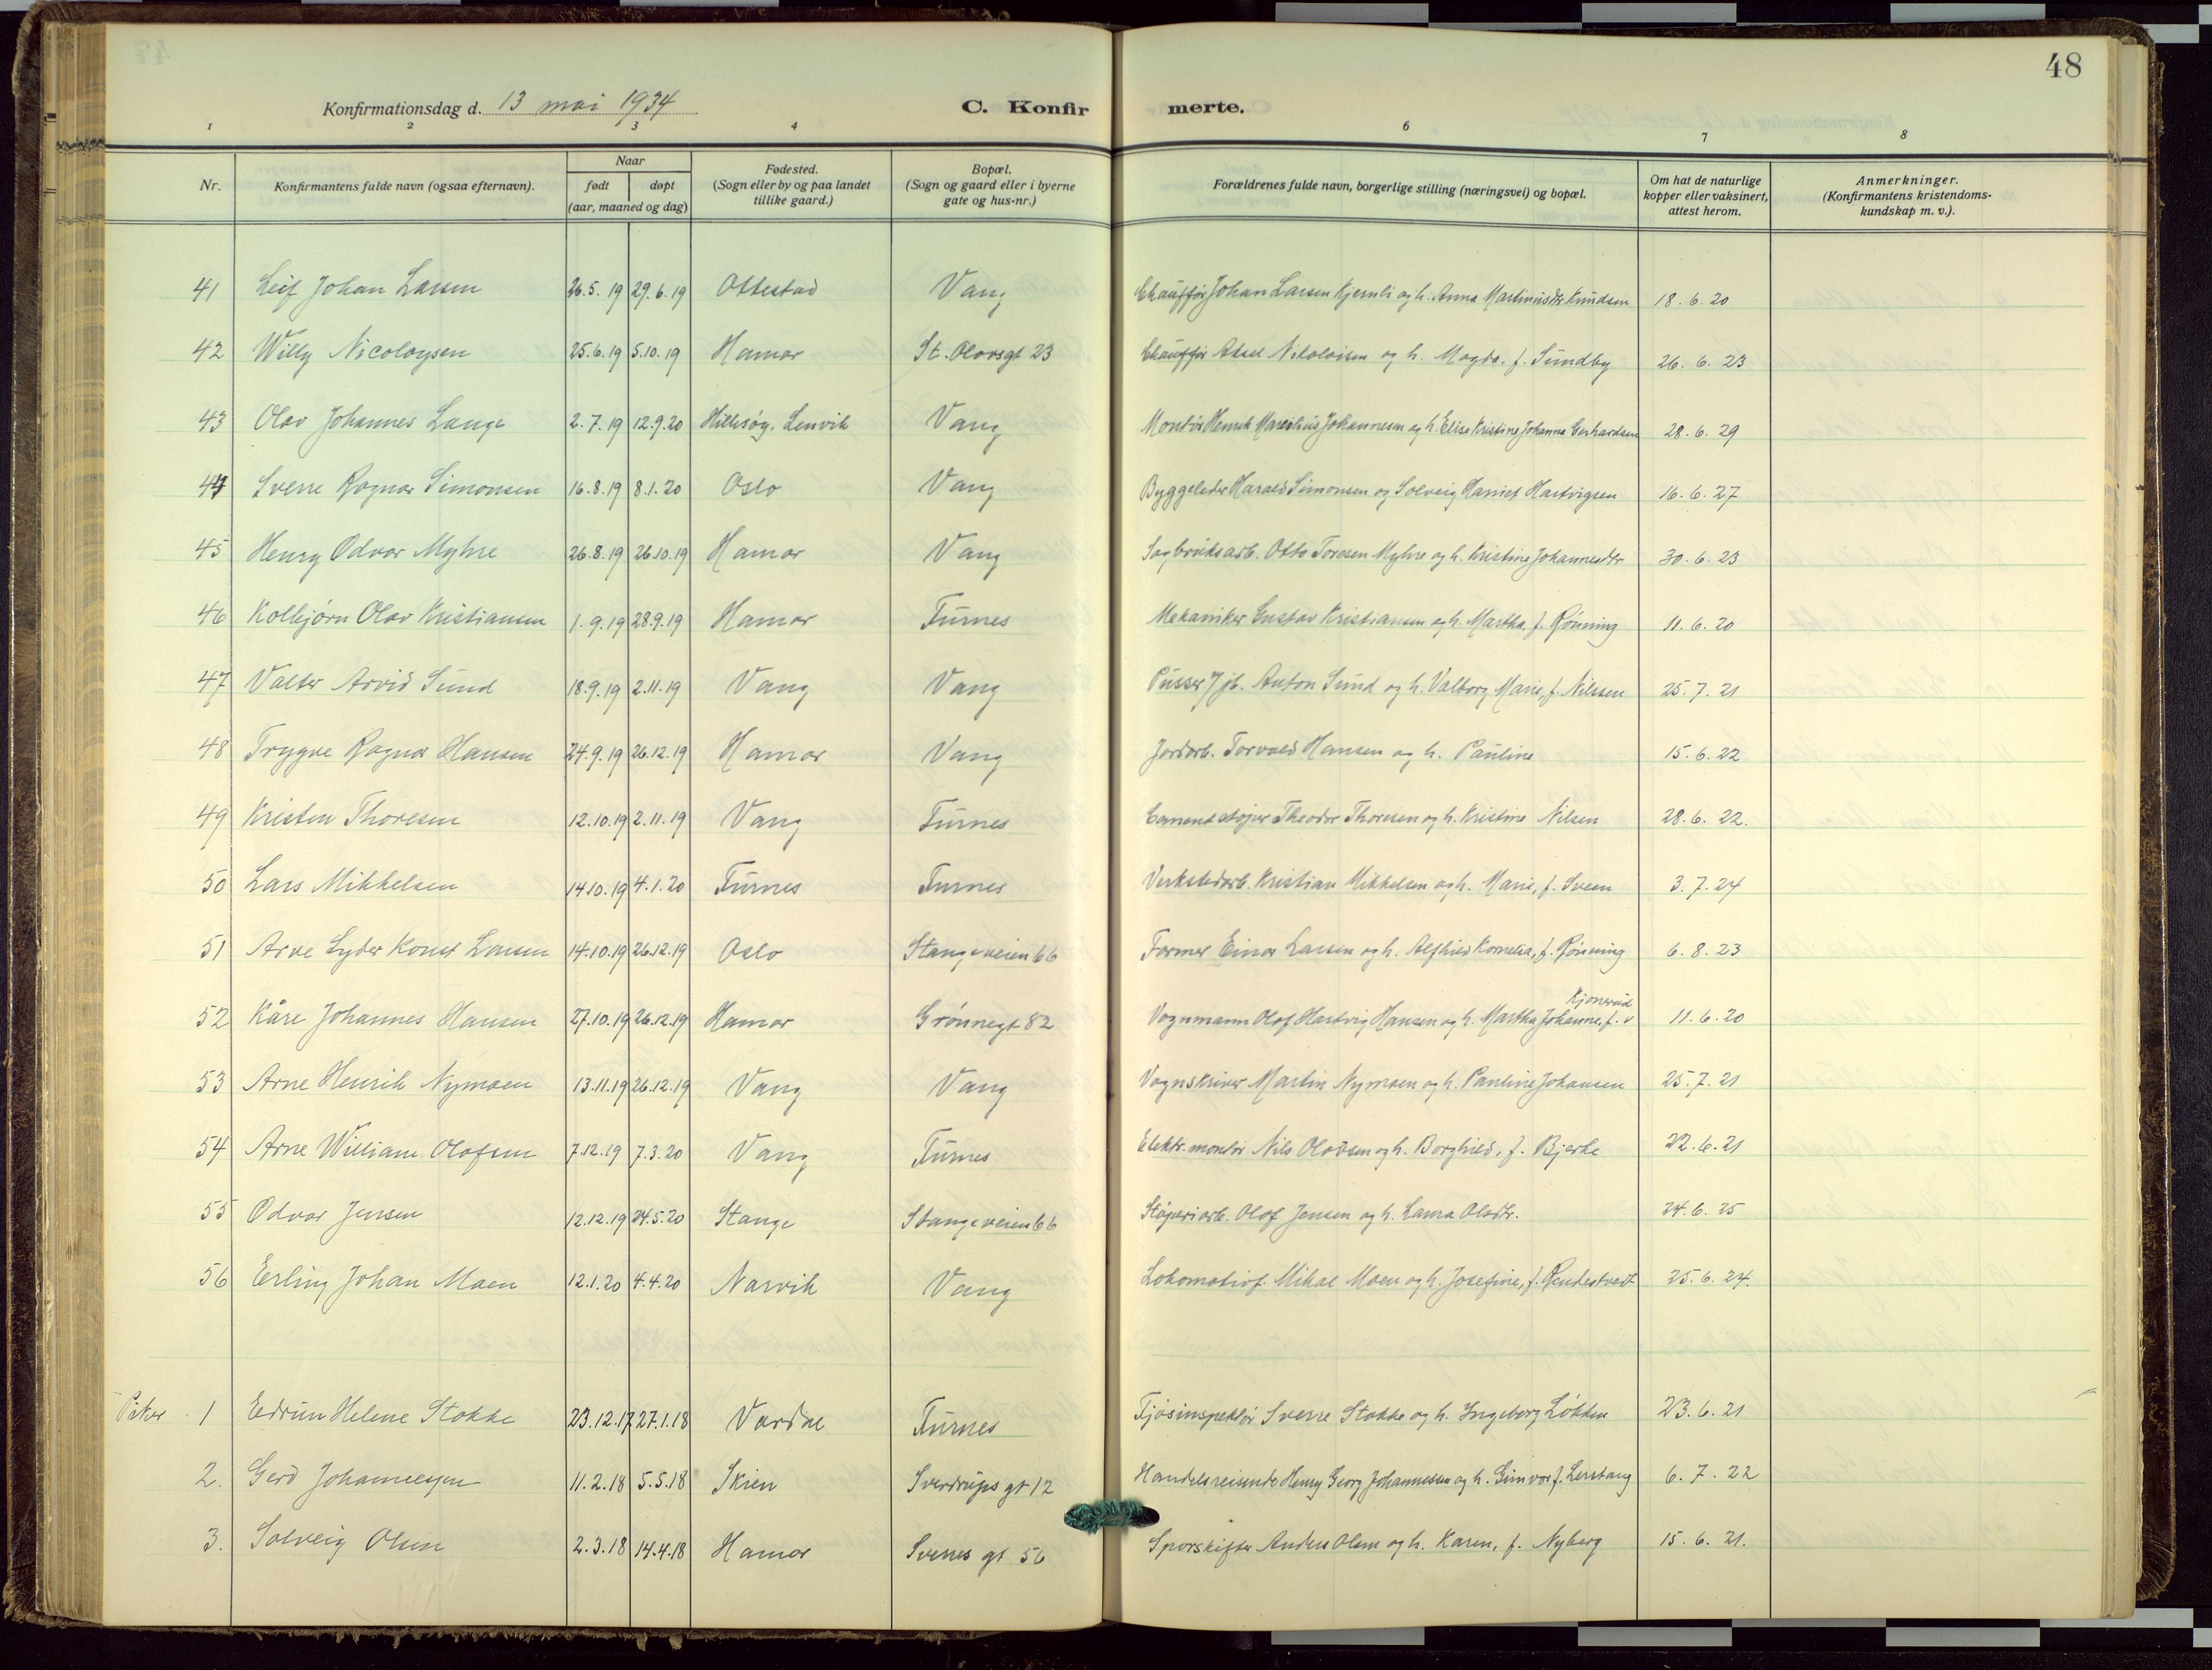 48
Konfirmationsdag d. 13 mai 1934 C. Konfirmerte.
1 2 3 4 6 7 8
Nr. Konfirmantens fulde navn (ogsaa efternavn). Naar født døpt (aar, maaned og dag) Fødested. (Sogn eller by og paa landet tillike gaard.) Bopæl. (Sogn og gaard eller i byerne gate og hus-nr.) Forældrenes fulde navn, borgerlige stilling (næringsvei) og bopæl. Om hat de naturlige kopper eller vaksinert, attest herom. Anmerkninger. (Konfirmantens kristendoms-kundskap m. v.).
41 Leif Johan Larsen 26.5.19 29.6.19 Ottestad Vang Chauffør Johan Larsen Kjernli og h. Anna Martinusdtr. Knudsen 18.6.20
42 Willy Nicolaysen 25.6.19 5.10.19 Hamar St. Olavsgt 23 Chauffør Aksel Nikolaisen og h. Magda, f. Sundby 26.6.23
43 Olav Johannes Lange 2.7.19 12.9.20 Hillesøy, Lenvik Vang Montør Henrik Marelius Johannesen og h. Elise Kristine Johanna Gerhardsen 28.6.29
44 Sverre Ragnar Simonsen 16.8.19 8.1.20 Oslo Vang Byggeleder Harald Simonsen og Solveig Harriet Hartvigsen 16.6.27
45 Henry Odvar Myhre 26.8.19 26.10.19 Hamar Vang Sagbruksarb. Otto Toresen Myhre og h. Kristine Johannesdtr 30.6.23
46 Kolbjørn Olav Kristiansen 1.9.19 28.9.19 Hamar Furnes Mekaniker Gustav Kristiansen og h. Martha, f. Rønning 11.6.20
47 Valter Arvid Sund 18.9.19 2.11.19 Vang Vang Pusser v/ jb. Anton Sund og h. Valborg Marie, f. Nilssen 25.7.21
48 Trygve Ragnar Hansen 24.9.19 26.12.19 Hamar Vang Jordarb. Torvald Hansen og h. Pauline 15.6.22
49 Kristen Thoresen 12.10.19 2.11.19 Vang Furnes Cementstøper Theodor Thoresen og h. Kristine Nilsen 28.6.22.
50 Lars Mikkelsen 14.10.19 4.1.20 Furnes Furnes Verkstedarb. Kristian Mikkelsen og h. Marie, f. Sveen 3.7.24
51 Arve Lyder Konst Larsen 14.10.19 26.12.19 Oslo Stangeveien 66 Former Einar Larsen og h. Alfhild Kornelia, f. Rønning 6.8.23
52 Kåre Johannes Hansen 27.10.19 26.12.19 Hamar Grønnegt 82 Vognmann Olaf Hartvig Hansen og h. Martha Johanne, f. Kjonerud 11.6.20
53 Arne Henrik Nymoen 13.11.19 26.12.19 Vang Vang Vognskriver Martin Nymoen og h. Pauline Johansen 25.7.21
54 Arne William Olafsen 7.12.19 7.3.20 Vang Furnes Elektr. montør Nils Olavsen og h. Borghild, f. Bjerke 22.6.21
55 Odvar Jensen 12.12.19 24.5.20 Stange Stangeveien 66 Støperiarb. Olaf Jensen og h. Laura Olsdtr. 24.6.25
56 Erling Johan Moen 12.1.20 4.4.20 Narvik Vang Lokomotivf. Mikal Moen og h. Josefine, f. Rendestvedt 25.6.24.
Piker 1 Eldrun Helene Stokke 23.12.17 27.1.18 Vardal Furnes Fjøsinspektør Sverre Stokke og h. Ingeborg Løkken 23.6.21
2. Gerd Johannessen 11.2.18 5.5.18 Skien Sverdrups gt 12 Handelsreisende Henry Georg Johannessen og h. Gunvor f. Lerstang 6.7.22
3. Solveig Olsen 2.3.18 14.4.18 Hamar Sverres gt 56 Sporskifter Anders Olsen og h. Karen, f. Nyberg 15.6.21.